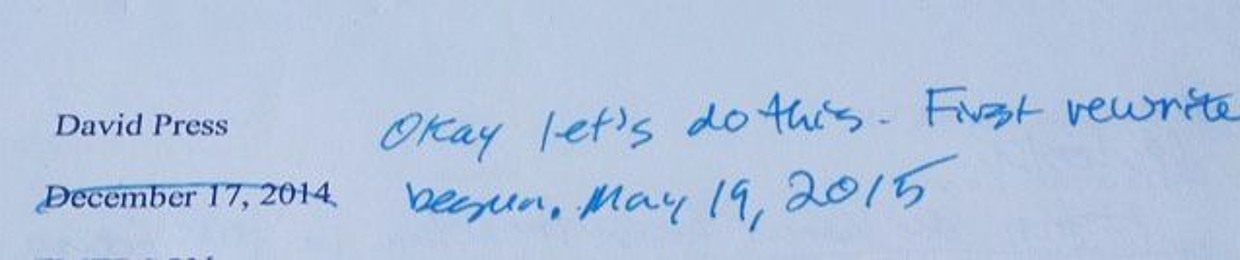 David Press Okay let's do this. First rewrite
December 17, 2014 begun. May 19, 2015